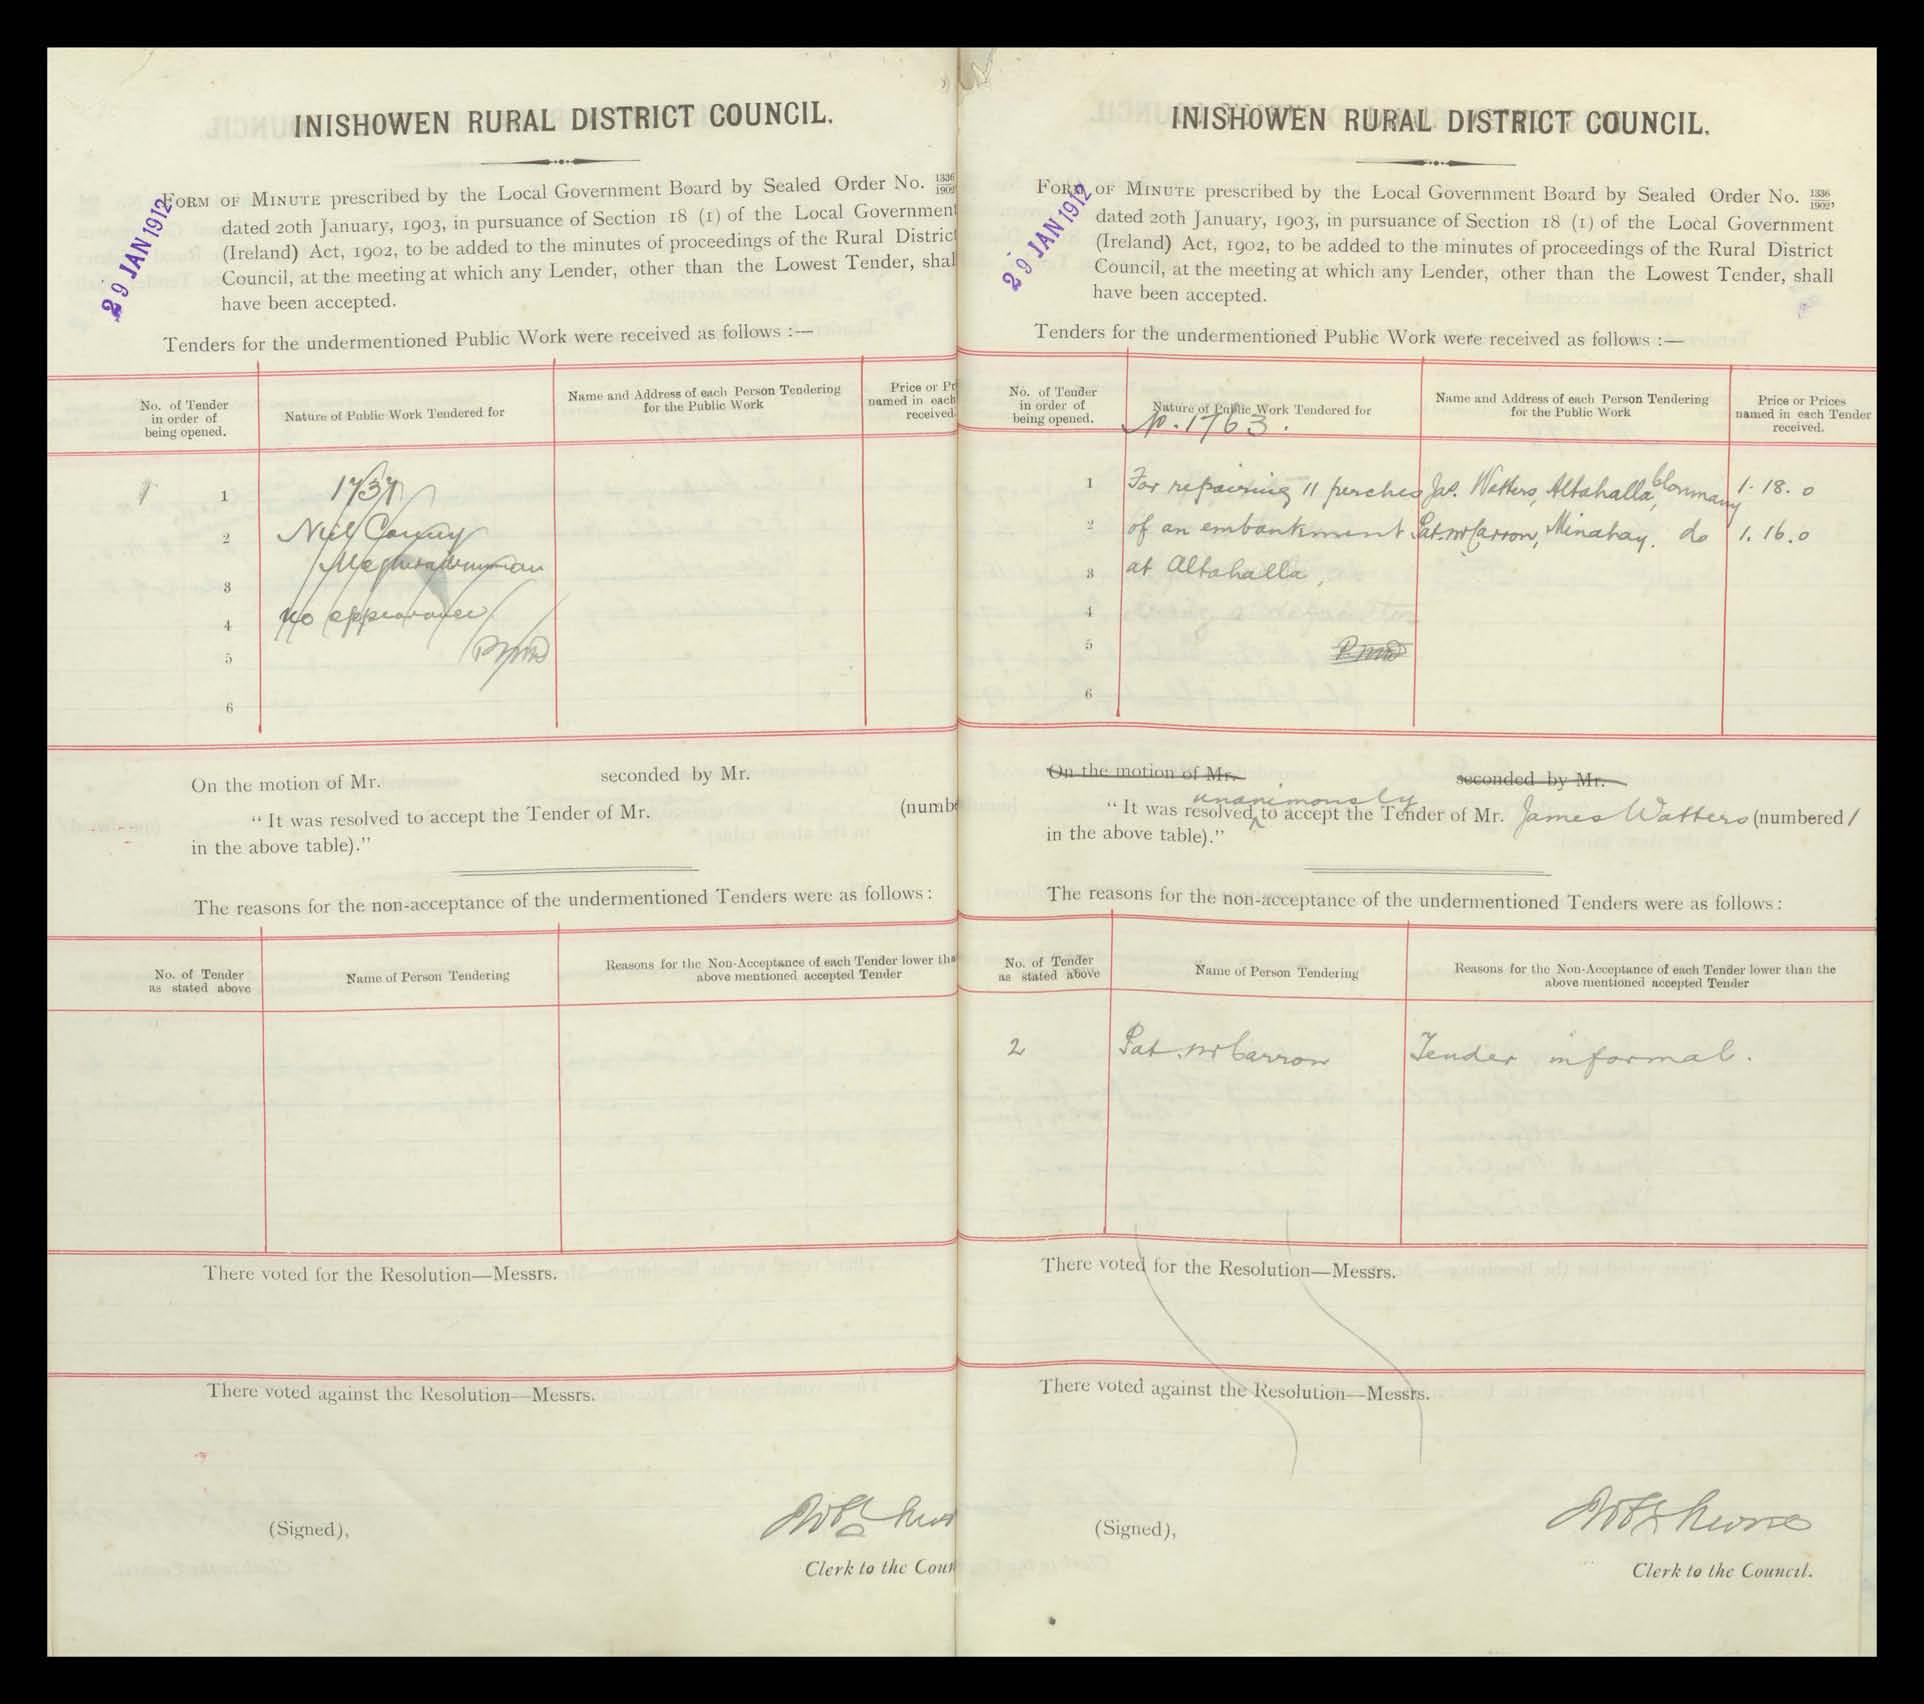 INISHOWEN RURAL DISTRICT COUNCIL.
29 JAN 1912
FORM OF MINUTE prescribed by the Local Government Board by Sealed Order No. 1336/1902
dated 20th January, 1903, in pursuance of Section 18 (1) of the Local Government
(Ireland) Act, 1902, to be added to the minutes of proceedings of the Rural Distric
Council, at the meeting at which any Lender, other than the Lowest Tender, shal
have been accepted.
Tenders for the undermentioned Public Work were received as follows :—
No. of Tender in order of being opened.
Nature of Public Work Tendered for
Name and Address of each Person Tendering for the Public Work
Price or Pr
named in each
received.
1 1 1737
2 Neil
3
4 No appearance
5
6
On the motion of Mr. seconded by Mr.
"It was resolved to accept the Tender of Mr. (numbe
in the above table)."
The reasons for the non-acceptance of the undermentioned Tenders were as follows :
No. of Tender as stated above
Name of Person Tendering
Reasons for the Non-Acceptance of each Tender lower tha
above mentioned accepted Tender
There voted for the Resolution—Messrs.
There voted against the Resolution—Messrs.
(Signed),
Clerk to the Coun
INISHOWEN RURAL DISTRICT COUNCIL.
29 JAN 1912
FORM OF MINUTE prescribed by the Local Government Board by Sealed Order No. 1336/1902,
dated 20th January, 1903, in pursuance of Section 18 (1) of the Local Government
(Ireland) Act, 1902, to be added to the minutes of proceedings of the Rural District
Council, at the meeting at which any Lender, other than the Lowest Tender, shall
have been accepted.
Tenders for the undermentioned Public Work were received as follows :—
No. of Tender in order of being opened.
Nature of Public Work Tendered for
No. 1763.
Name and Address of each Person Tendering for the Public Work
Price or Prices named in each Tender received.
1 For repairing 11 perches Jas. Watters, Altahalla, Clonmany 1. 18. 0
2 of an embankment Pat. McCarron, Minahay. do 1. 16. 0
3 at Altahalla,
4
5
6
On the motion of Mr. seconded by Mr.
unanimously
"It was resolved to accept the Tender of Mr. James Watters (numbered 1
in the above table)."
The reasons for the non-acceptance of the undermentioned Tenders were as follows :
No. of Tender as stated above
Name of Person Tendering
Reasons for the Non-Acceptance of each Tender lower than the
above mentioned accepted Tender
2 Pat. McCarron Tender informal.
There voted for the Resolution—Messrs.
There voted against the Resolution—Messrs.
(Signed),
Clerk to the Council.